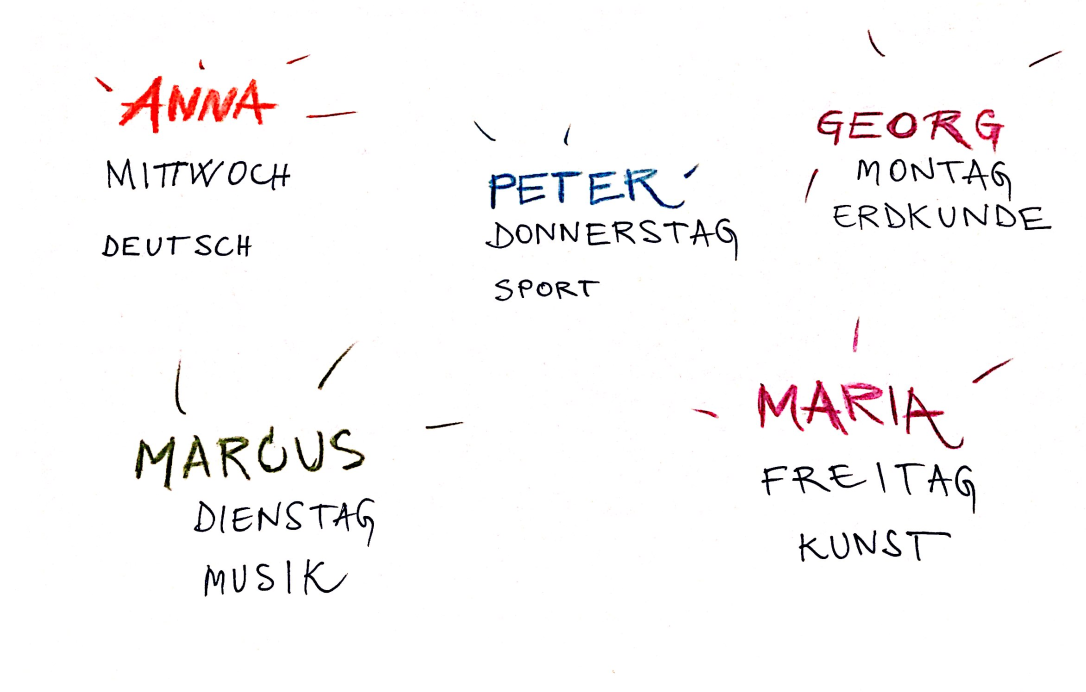 ANNA
MITTWOCH
DEUTSCH
PETER
DONNERSTAG
SPORT
GEORG
MONTAG
ERDKUNDE
MARCUS
DIENSTAG
MUSIK
MARIA
FREITAG
KUNST